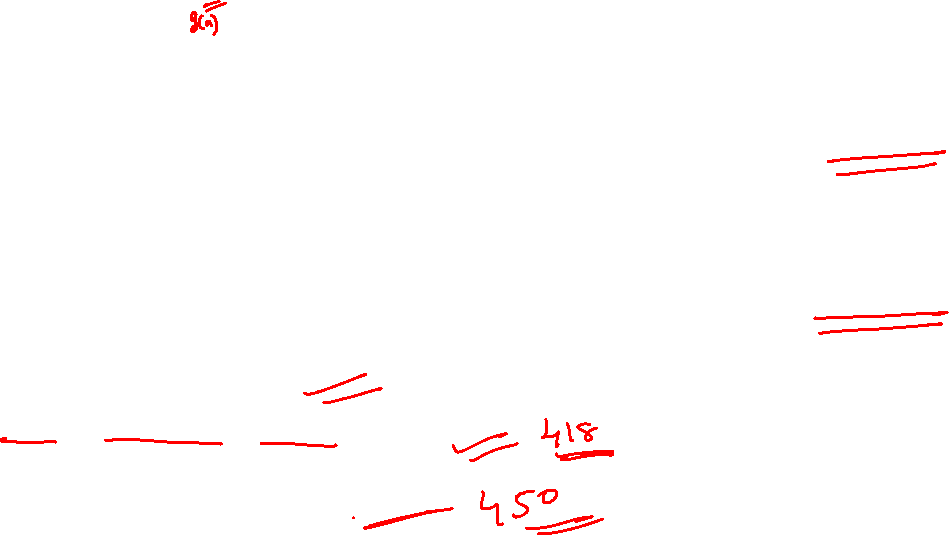 g(n)
418
450